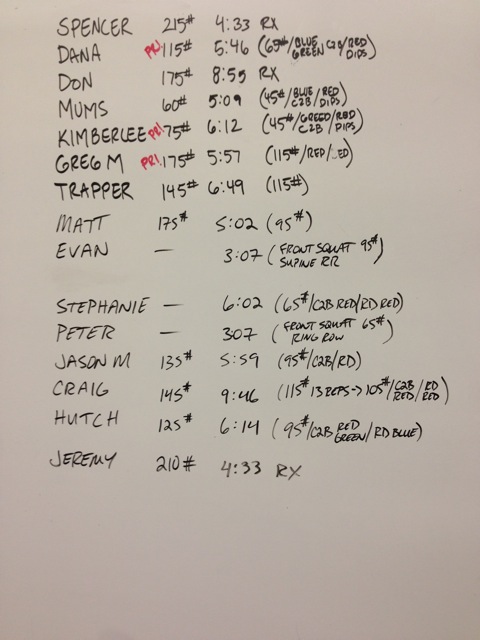 SPENCER 215# 4:33 RX
DANA PR! 115# 5:46 (65#/BLUE GREEN C2B/RED DIPS)
DON 175# 8:55 RX
MUMS 60# 5:09 (45#/BLUE C2B/RED DIPS)
KIMBERLEE PR! 75# 6:12 (45#/GREED C2B/RED DIPS)
GREG M PR! 175# 5:57 (115#/RED/RED)
TRAPPER 145# 6:49 (115#)
MATT 175# 5:02 (95#)
EVAN — 3:07 (FRONT SQUAT 95#
SUPINE RR)
STEPHANIE — 6:02 (65#/C2B RED/RD RED)
PETER — 307 (FRONT SQUAT 65#
RING ROW)
JASON M 135# 5:59 (95#/C2B/RD)
CRAIG 145# 9:46 (115# 13 REPS -> 105#/C2B RED/RD RED)
HUTCH 125# 6:14 (95#/C2B RED GREEN/RD BLUE)
JEREMY 210# 4:33 RX